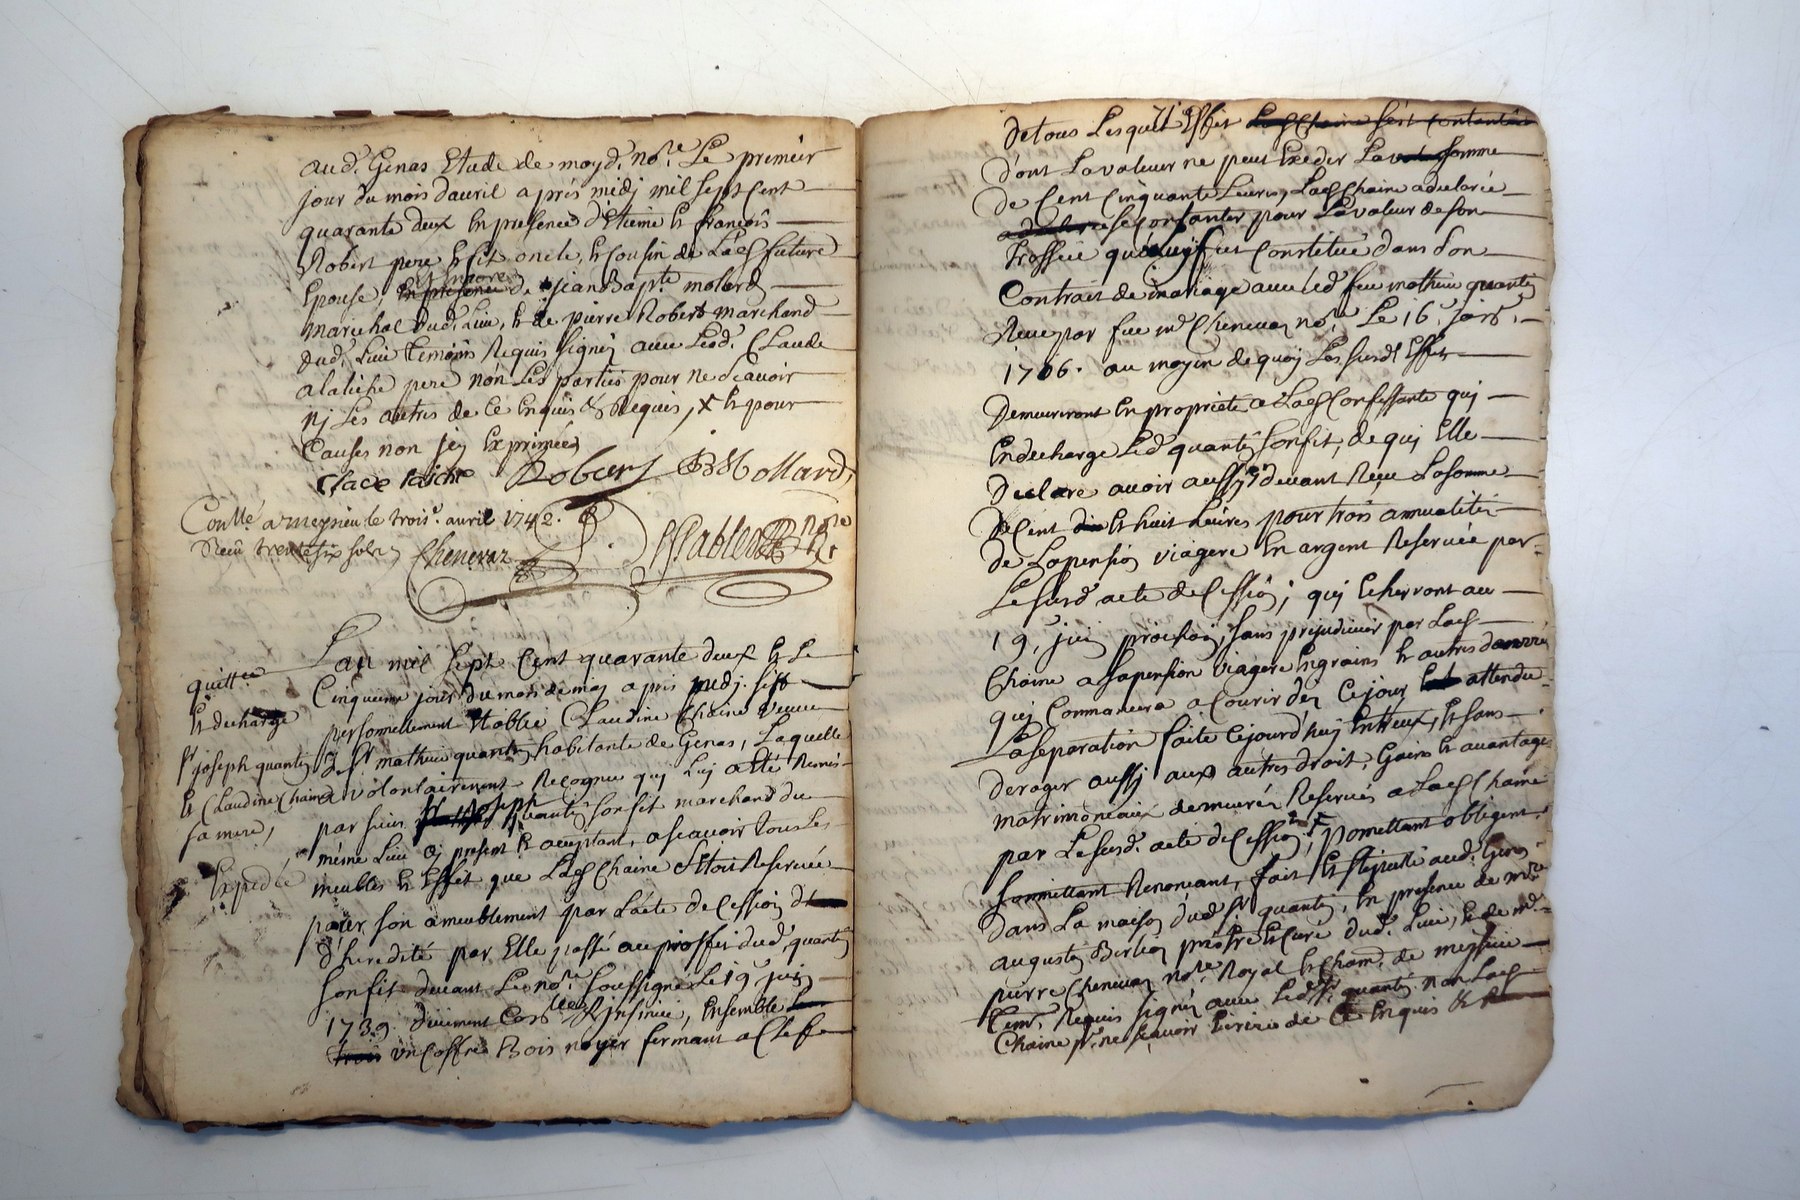 aud. Genas Etude de moyd. nore. Le premier
jour du mois dauril aprés midj mil sept Cent
quarante deux En presence d'Etiene Et françois
Robert pere Et fit oncle, Et cousin de Lad future
Epouse, Et encore de jean Bapte molard
marechal dud. Lieu, Et de pierre Robert marchand
dud. Lieu temoins Requis signéz auec Led. Claude
alatiche pere non Les parties pour ne scauoir
nj Les autres de Ce Enquis & Requis, x Et pour
Causes non jcy Exprimées
Robert JB Mollard
Conllé a meysieu le troise. auril 1742.
Reçu trente six sols Chenevaz
nore
quittce
Et decharge
sr joseph quantin
Et Claudine Chaine
sa mere,
Expediée
L'an mil sept Cent quarante deux Et Le
Cinquieme jour du mois de may apres midj. s'est
personnellement Etablie Claudine Chaine veuue
de sr mathieu quantin habitante de Genas, Laquelle
a volontairement Recognu quj Luj a été Remis
par sieur joseph quantin son fit marchand du
méme Lieu cy present Et acceptant, ascauoir tous Les
meubles Et Effet que Lad Chaine s'étoit Reseruée
pour son ameublement par L'acte de Cession
d'heredité par Elle passé au proffit dud. quantin
son fit deuant Le nore soussigné Le 19e juin
1739. düement Conllé & jnsinüé, Ensemble
un Coffre Bois noyer fermant a Clef
De tous Lesquels Effet Lad Chaine s'est Contentée
dont La valeur ne peut Exeder La somme
de Cent Cinquante Liures, Lad Chaine a declarée
se Contanter pour La valeur de son
trossée qui luy fut Constitué dans son
Contrat de mariage auec Led. feu mathieu quantin
Receu par feu me Cheneuaz nore Le 16e
1706. au moyen de quoy Les susds Effet
Demeureront En proprieté a Lad Confessante quj
En decharge Led quantin son fit, de quj Elle
Declare auoir aussy cy deuant Reçu La somme
de Cent dix Et huit Liures pour trois annualités
de La pension viagere En argent Reseruée par
Le susd. acte de Cession; quj Echerront au
19e juin prochain, sans prejudicier par Lad
Chaine a sa pension viagere En grains Et autres danrrées
quj Commancera a Courir déz Ce jour attendu
La separation faite Cejourd'huy Entreux, Et sans
deroger aussj aux autres droit, Gains Et auantages
matrimoniaux demeuréz Reserués a Lad Chaine
par Le susd. acte de Cession, promettant obligent
soumettant Renonçant, fait Et stipulé aud. Genas
dans La maison dud. sr quantin, En presence de mre
augustin Berlion prestre Et Curé dud. Lieu, Et de me
pierre Cheneuaz nore Royal Et Cham. de meysieu
tem. Requis signéz auec Led. sr quantin non Lad
Chaine pr. ne scauoir Ecrire de Ce Enquis & R